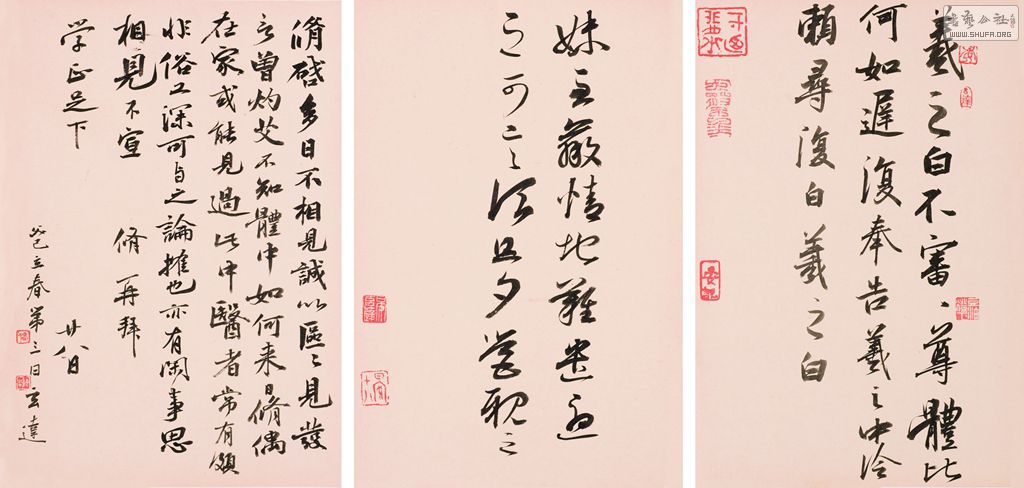 書藝公社
WWW.SHUFA.ORG
羲之白不審、尊體比
何如遲復奉告羲之中冷
賴尋復白羲之白
妹至羸情地難遣憂
之可言、須旦夕營視之
脩啟多日不相見誠以區〻見發
言曾灼艾不知體中如何来日脩偶
在家或能見過此中醫者常有頗
非俗工深可与之論搉也亦有閑事思
相見不宣 脩再拜
学正足下 廿八日
癸巳立春第三日玄達